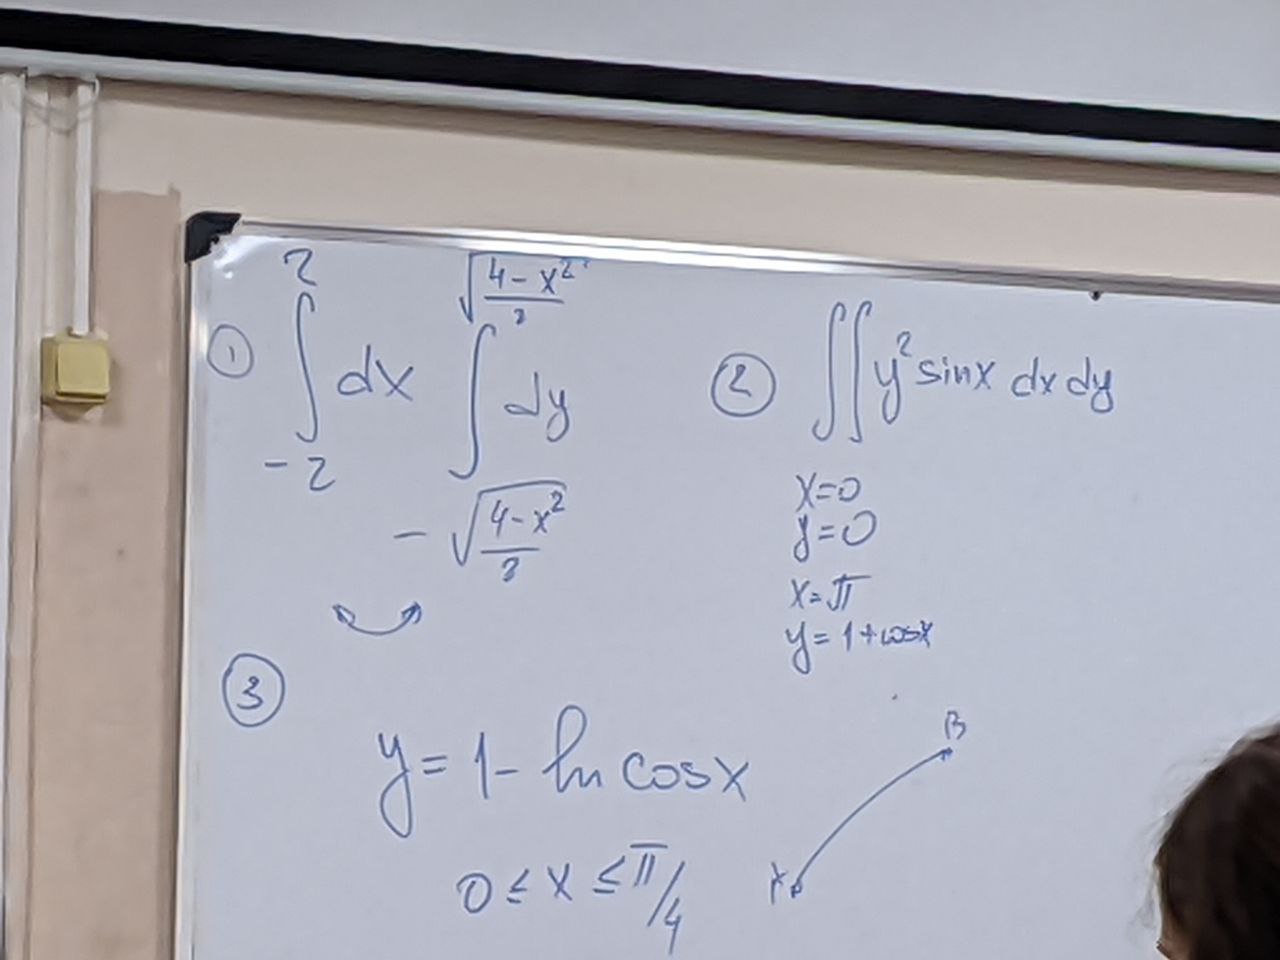 ① ∫_{-2}^{2} dx ∫_{-√((4-x²)/2)}^{√((4-x²)/2)} dy
② ∫∫ y² sinx dx dy
x=0
y=0
x=π
y=1+cosx
③
y=1-ln cosx
0≤x≤π/4
B
A